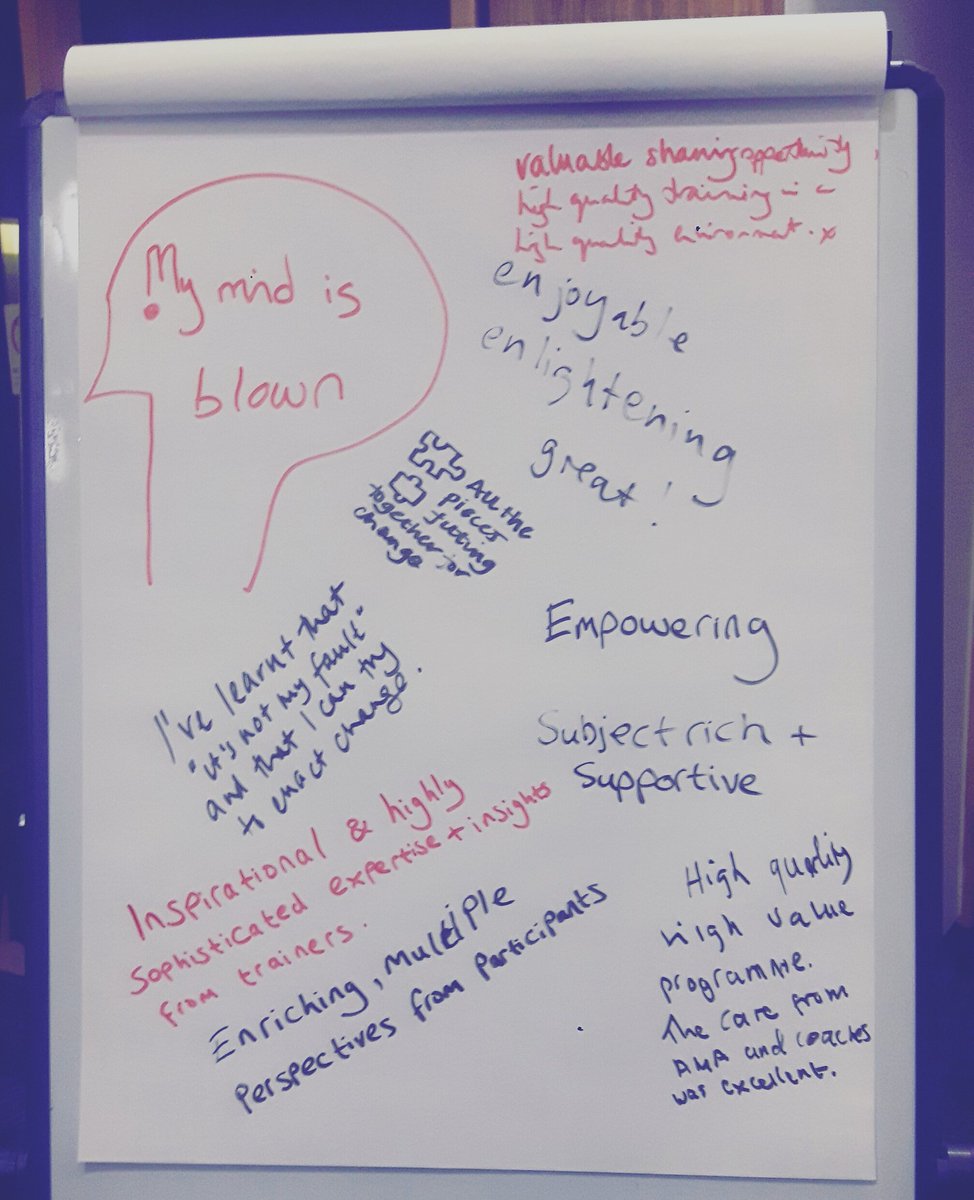 My mind is
blown
valuable sharing opportunity
high quality training in a
high quality environment. x
enjoyable
enlightening
great!
All the
pieces
fitting
together for
change
I've learnt that
"it's not my fault"
and that I can try
to enact change.
Empowering
Subject rich +
Supportive
Inspirational & highly
Sophisticated expertise + insights
from trainers.
Enriching, Multiple
Perspectives from Participants
High quality
High value
programme.
The care from
AMA and coaches
was excellent.